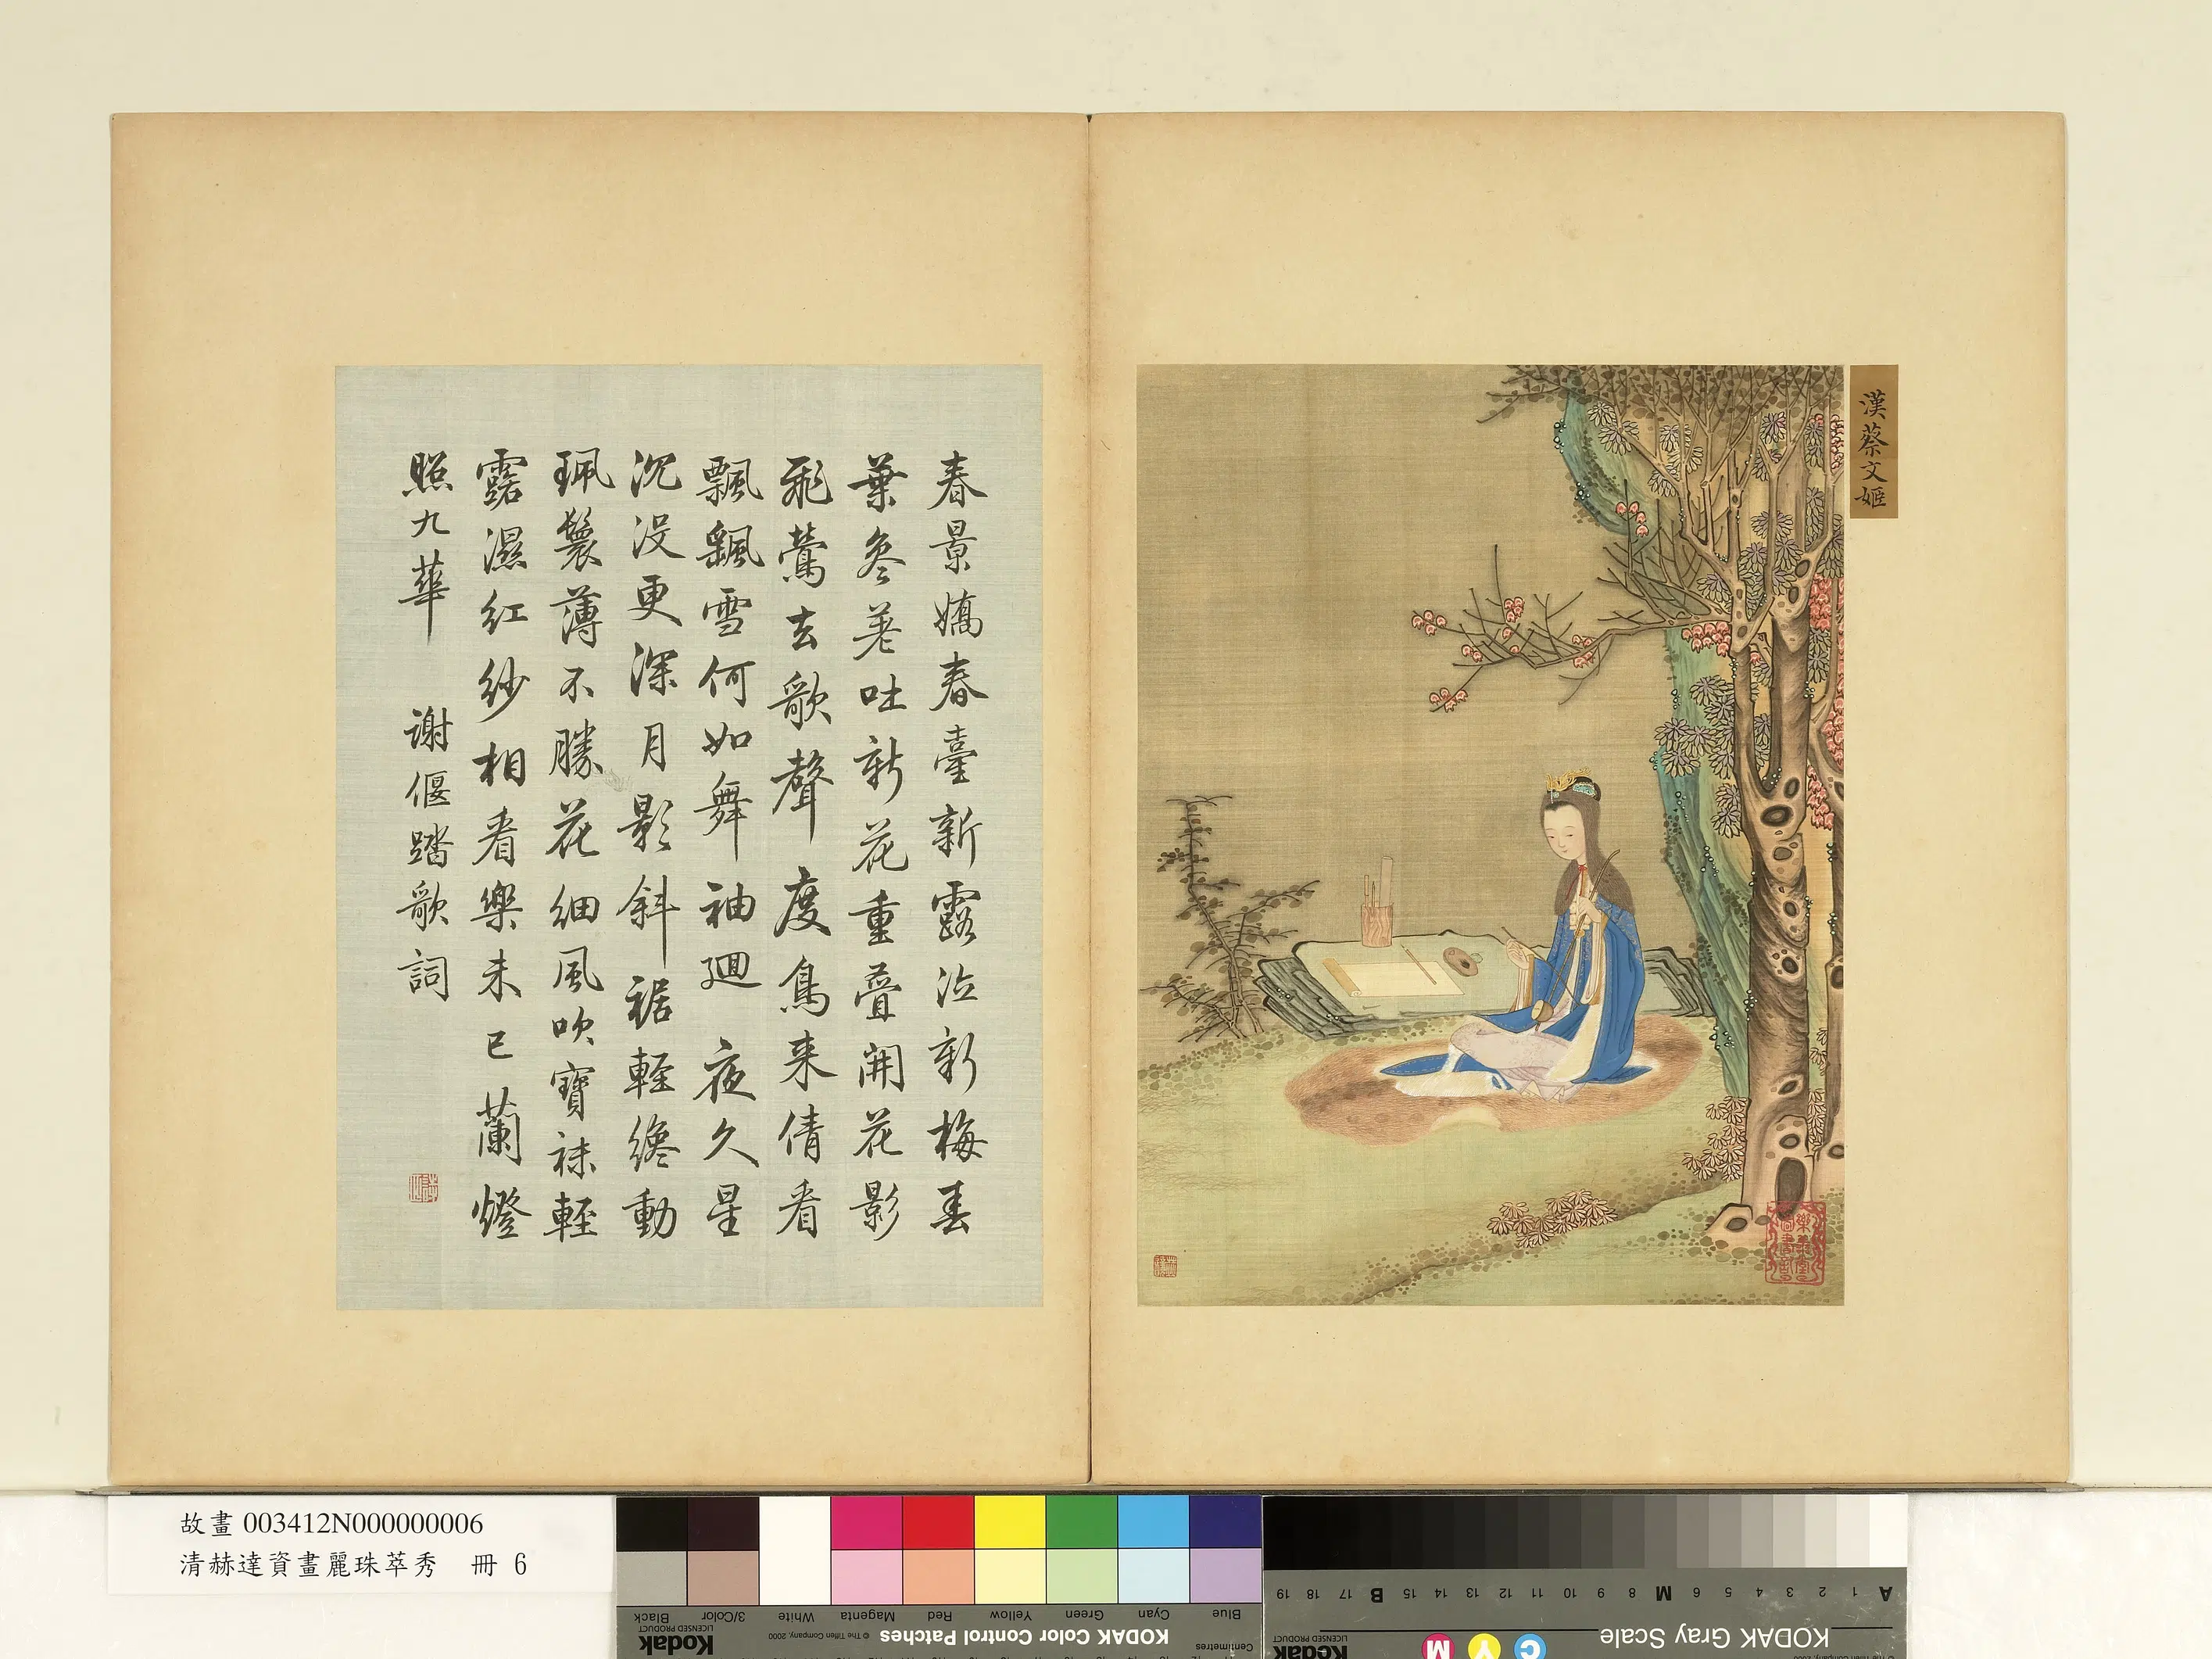 漢蔡文姬
春景嬌春臺新露泣新梅春
葉參差吐新花重疊開花影
飛鶯去歌聲度鳥来倩看
飄颻雪何如舞袖迴夜久星
沉没更深月影斜裾輕纔動
珮鬟薄不勝花細風吹寶袜輕
露濕紅紗相看樂未已蘭燈
照九華 謝偃踏歌詞
故畫 003412N000000006
清赫達資畫麗珠萃秀 冊 6
Blue Cyan Green Yellow Red Magenta White 3/Color Black
Centimetres KODAK Color Control Patches © The Tiffen Company, 2000 Kodak LICENSED PRODUCT
A 1 2 3 4 5 6 M 8 9 10 11 12 13 14 15 B 17 18 19
KODAK Gray Scale C Y M Kodak LICENSED PRODUCT